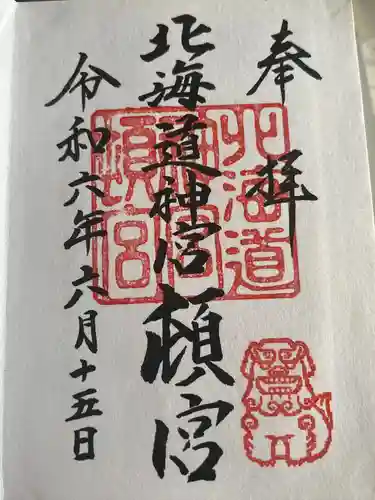 奉拝
北海道神宮頓宮
令和六年六月十五日
北海道
神宮
頓宮